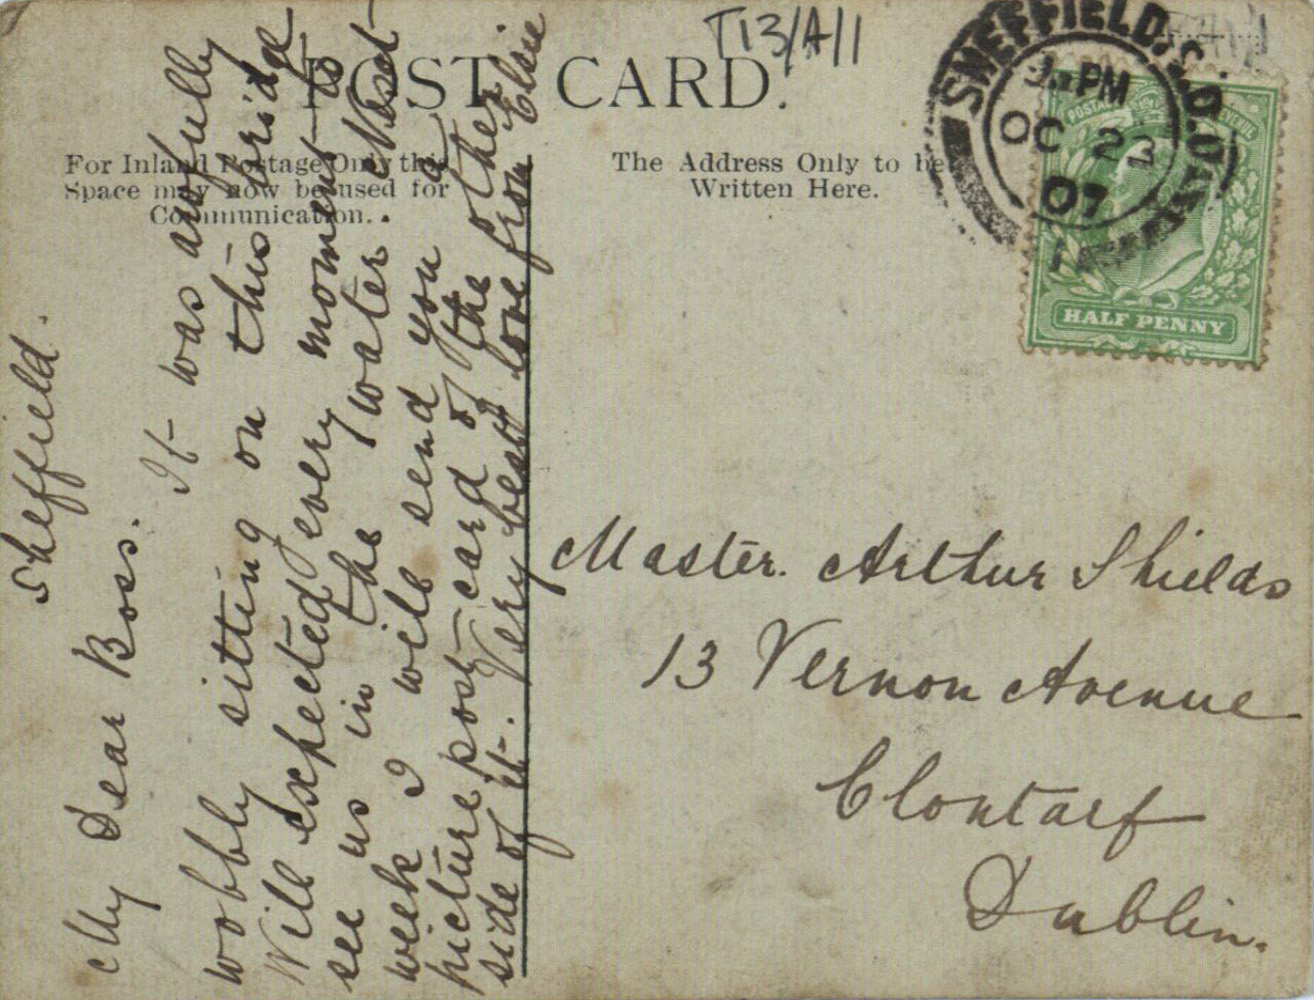 T13/A/1
POST CARD.
For Inland Postage Only this
Space may now be used for
Communication.
The Address Only to be
Written Here.
SHEFFIELD.
PM
OC 23
07
POSTAGE REVENUE
HALF PENNY
Sheffield.
My Dear Boss.
It was awfully
wobbly sitting on this bridge
Will expected every moment to
see us in the water. Next
week I will send you a
picture post card of the other
side of it. Very best love from Elsie
Master. Arthur Shields
13 Vernon Avenue
Clontarf
Dublin.